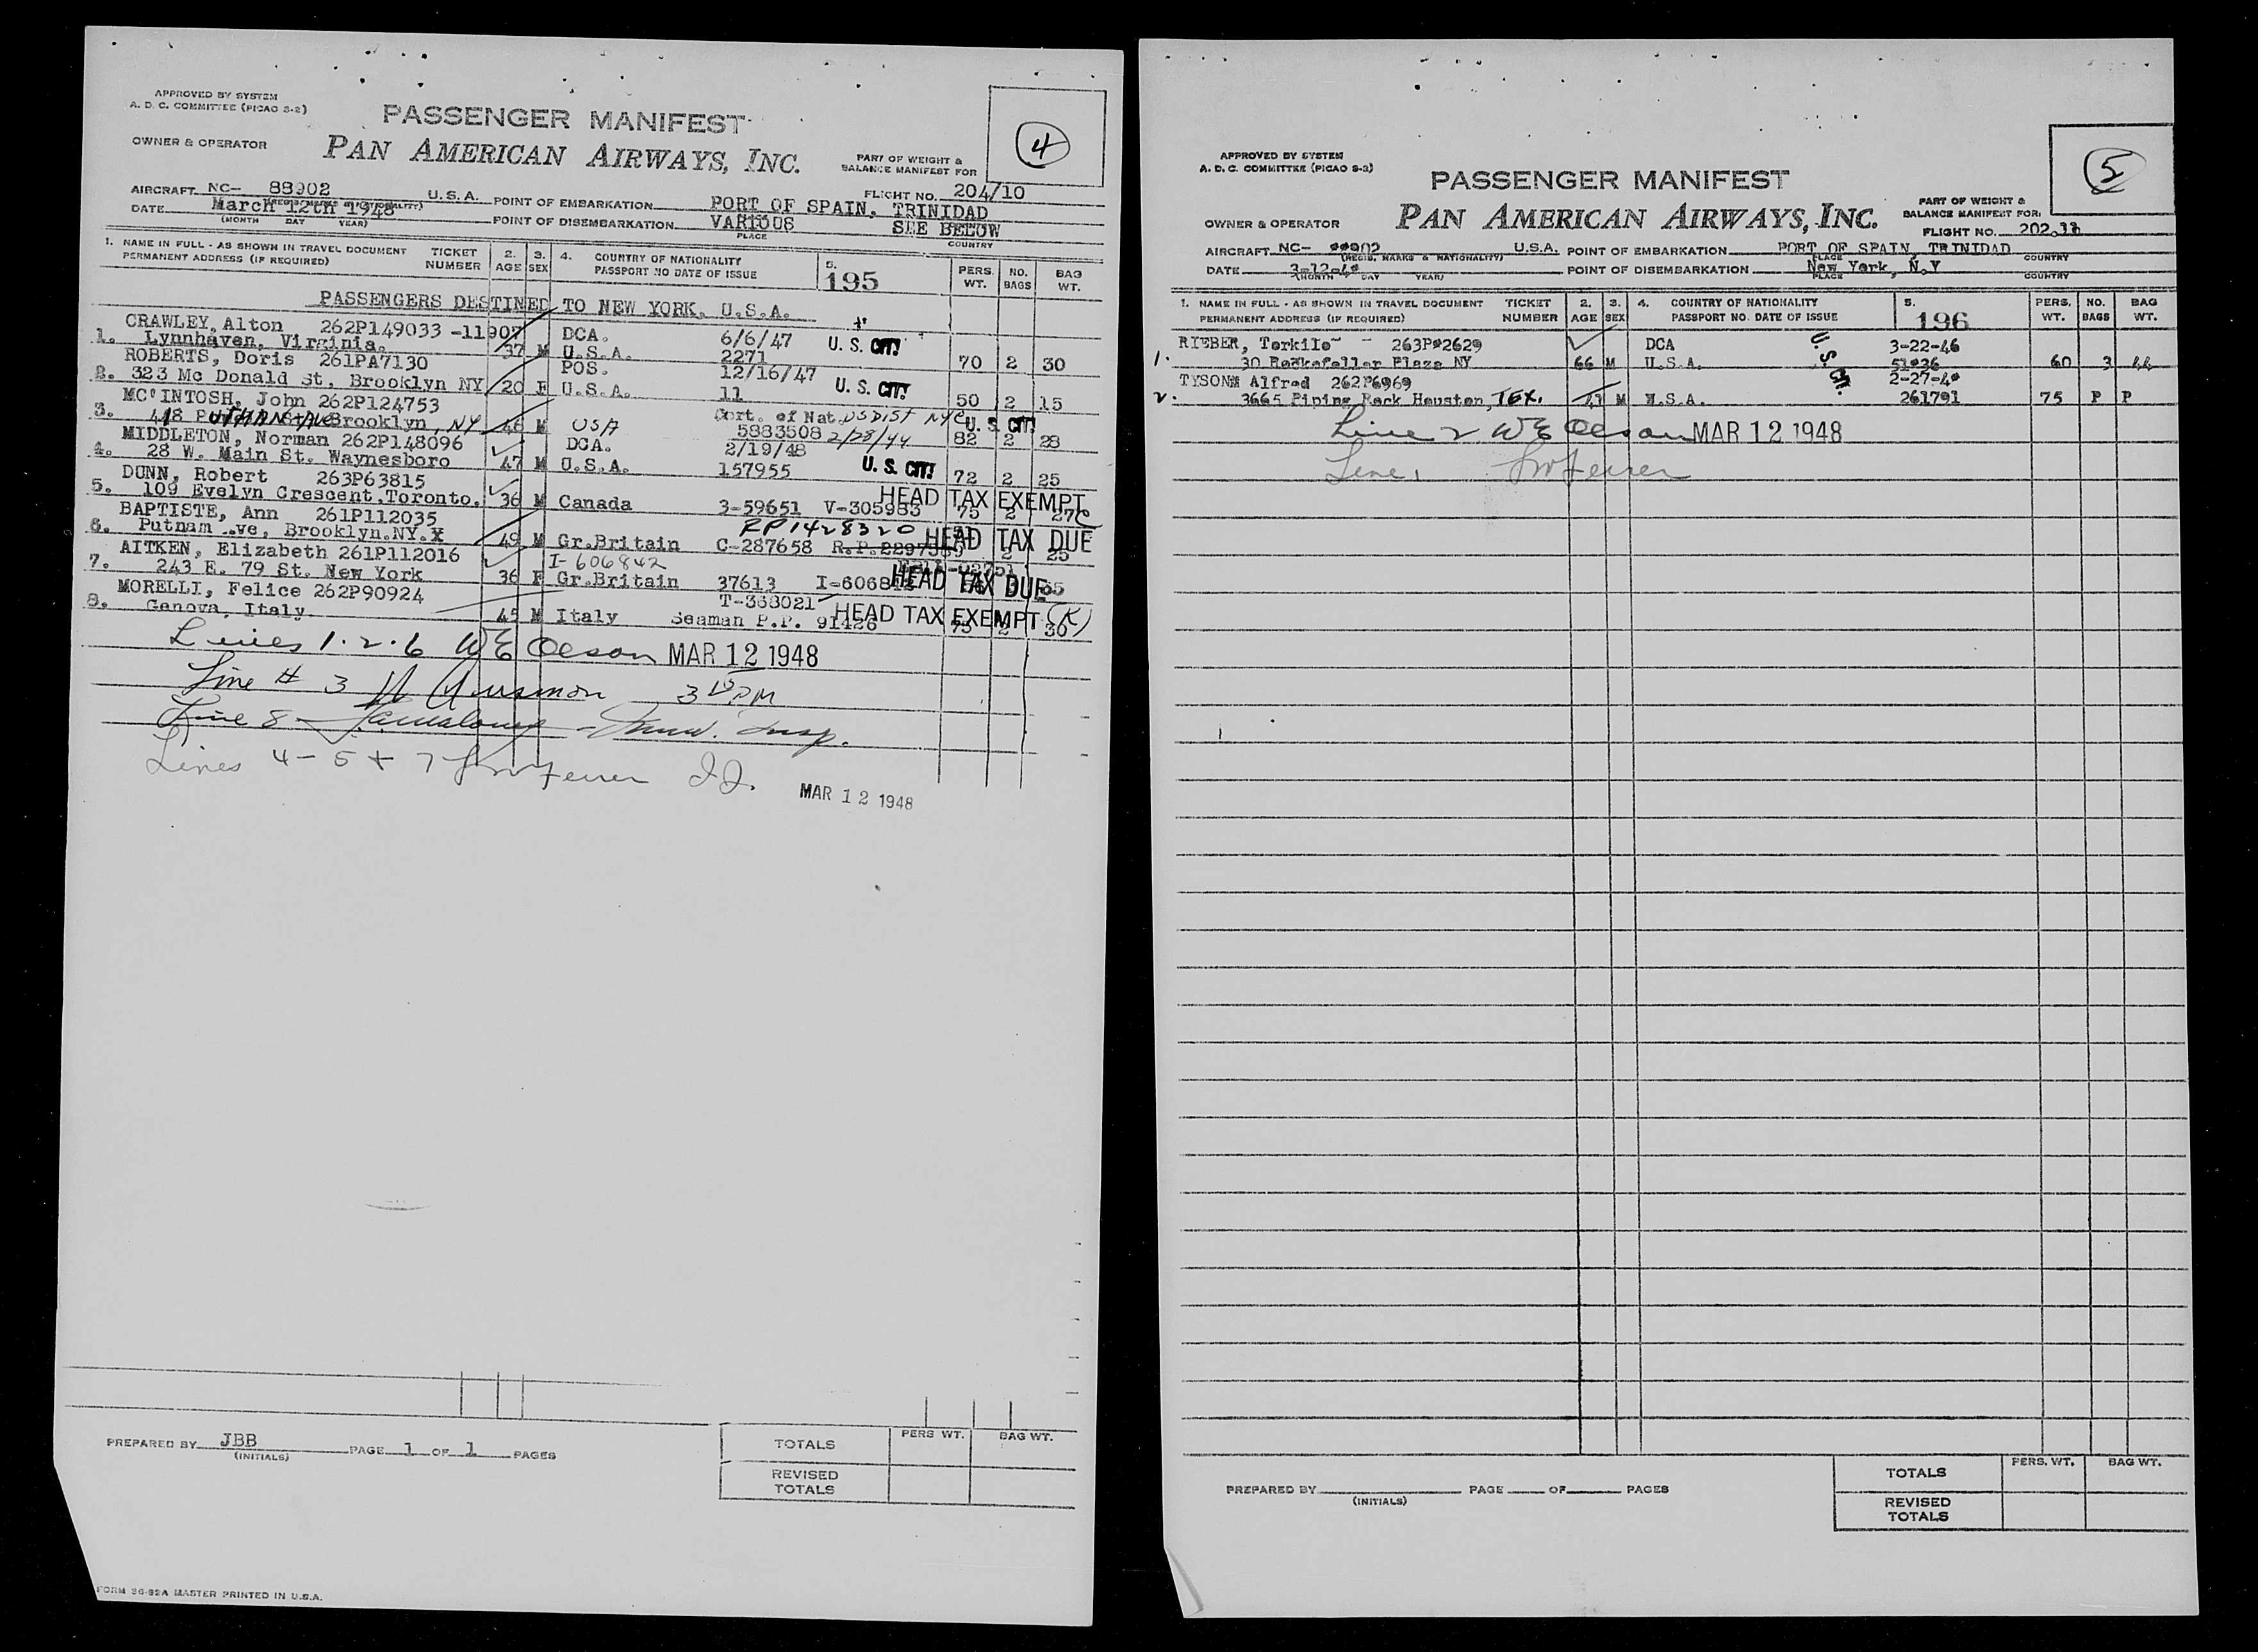 APPROVED BY SYSTEM
A. D. C. COMMITTEE (PICAO S-2)
PASSENGER MANIFEST
4
OWNER & OPERATOR
PAN AMERICAN AIRWAYS, INC.
PART OF WEIGHT &
BALANCE MANIFEST FOR
AIRCRAFT NC- 88902 U.S.A. POINT OF EMBARKATION PORT OF SPAIN, TRINIDAD FLIGHT NO. 204/10
DATE March 12th 1948 POINT OF DISEMBARKATION VARIOUS SEE BELOW
(MONTH DAY YEAR) PLACE COUNTRY
1. NAME IN FULL - AS SHOWN IN TRAVEL DOCUMENT TICKET 2. 3. 4. COUNTRY OF NATIONALITY 5. PERS. NO. BAG
PERMANENT ADDRESS (IF REQUIRED) NUMBER AGE SEX PASSPORT NO DATE OF ISSUE 195 WT. BAGS WT.
PASSENGERS DESTINED TO NEW YORK, U.S.A.
CRAWLEY, Alton 262P149033 -11907 DCA. 6/6/47
1. Lynnhaven, Virginia. 37 M U.S.A. 2271 U. S. CIT! 70 2 30
ROBERTS, Doris 261PA7130 POS. 12/16/47
2. 323 Mc Donald St, Brooklyn NY 20 F U.S.A. 11 U. S. CIT! 50 2 15
MC'INTOSH, John 262P124753 Cert. of Nat. US DIST NYC
3. Brooklyn, NY 46 M USA 5883508 2/28/44 U. S. CIT! 82 2 28
MIDDLETON, Norman 262P148096 DCA. 2/19/48
4. 28 W. Main St. Waynesboro 47 M U.S.A. 157955 U. S. CIT! 72 2 25
DUNN, Robert 263P63815
5. 109 Evelyn Crescent, Toronto. 36 M Canada 3-59651 V-305983 HEAD TAX EXEMPT 75 2 27
BAPTISTE, Ann 261P112035 RP1428320
6. Putnam ve, Brooklyn.NY.X 49 M Gr.Britain C-287658 R.P. HEAD TAX DUE 2 25
AITKEN, Elizabeth 261P112016 I-606842
7. 243 E. 79 St. New York 36 F Gr.Britain 37613 HEAD TAX DUE
MORELLI, Felice 262P90924 T-333021
8. Genova, Italy. 45 M Italy Seaman P.P. 91426 HEAD TAX EXEMPT (K) 75 2 30
Lines 1.2.6 WE Olson MAR 12 1948
Line # 3 PM
Line 8 Immi. Insp.
Lines 4-5+7 Ferrer II. MAR 12 1948
PREPARED BY JBB PAGE 1 OF 1 PAGES
(INITIALS)
TOTALS PERS WT. BAG WT.
REVISED
TOTALS
FORM 36-92A MASTER PRINTED IN U.S.A.
APPROVED BY SYSTEM
A. D. C. COMMITTEE (PICAO S-2)
PASSENGER MANIFEST
5
OWNER & OPERATOR
PAN AMERICAN AIRWAYS, INC.
PART OF WEIGHT &
BALANCE MANIFEST FOR:
FLIGHT NO. 202.
AIRCRAFT NC- U.S.A. POINT OF EMBARKATION PORT OF SPAIN, TRINIDAD
(REGIS. MARKS & NATIONALITY) PLACE COUNTRY
DATE POINT OF DISEMBARKATION New York, N.Y
(MONTH DAY YEAR) PLACE COUNTRY
1. NAME IN FULL - AS SHOWN IN TRAVEL DOCUMENT TICKET 2. 3. 4. COUNTRY OF NATIONALITY 5. PERS. NO. BAG
PERMANENT ADDRESS (IF REQUIRED) NUMBER AGE SEX PASSPORT NO. DATE OF ISSUE 196 WT. BAGS WT.
RIEBER, DCA U. S. CIT. 3-22-46
1. 30 Rockefeller Plaza NY 66 M U.S.A. 60 3 44
TYSON Alfred 262P6969
2. 3665 Piping Rock Houston, TEX. M U.S.A. 261791 75 P P
Line 2 WE Olson MAR 12 1948
Line 1 Ferrer
PREPARED BY PAGE OF PAGES
(INITIALS)
TOTALS PERS. WT. BAG WT.
REVISED
TOTALS